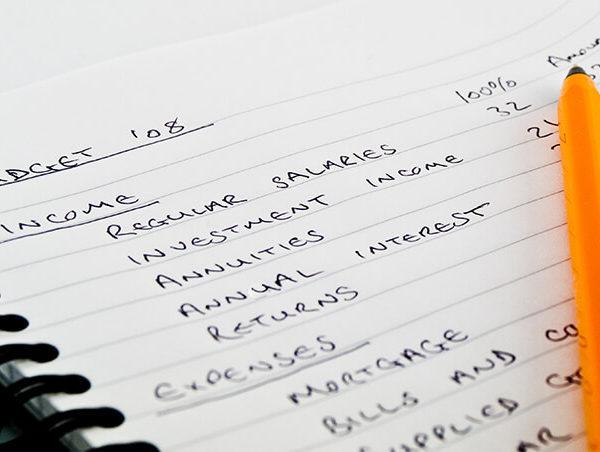 Amou
100%
BUDGET '08
32
INCOME
REGULAR SALARIES
INVESTMENT INCOME
ANNUITIES
ANNUAL INTEREST
RETURNS
EXPENSES
MORTGAGE
BILLS AND CO
SUPPLIED